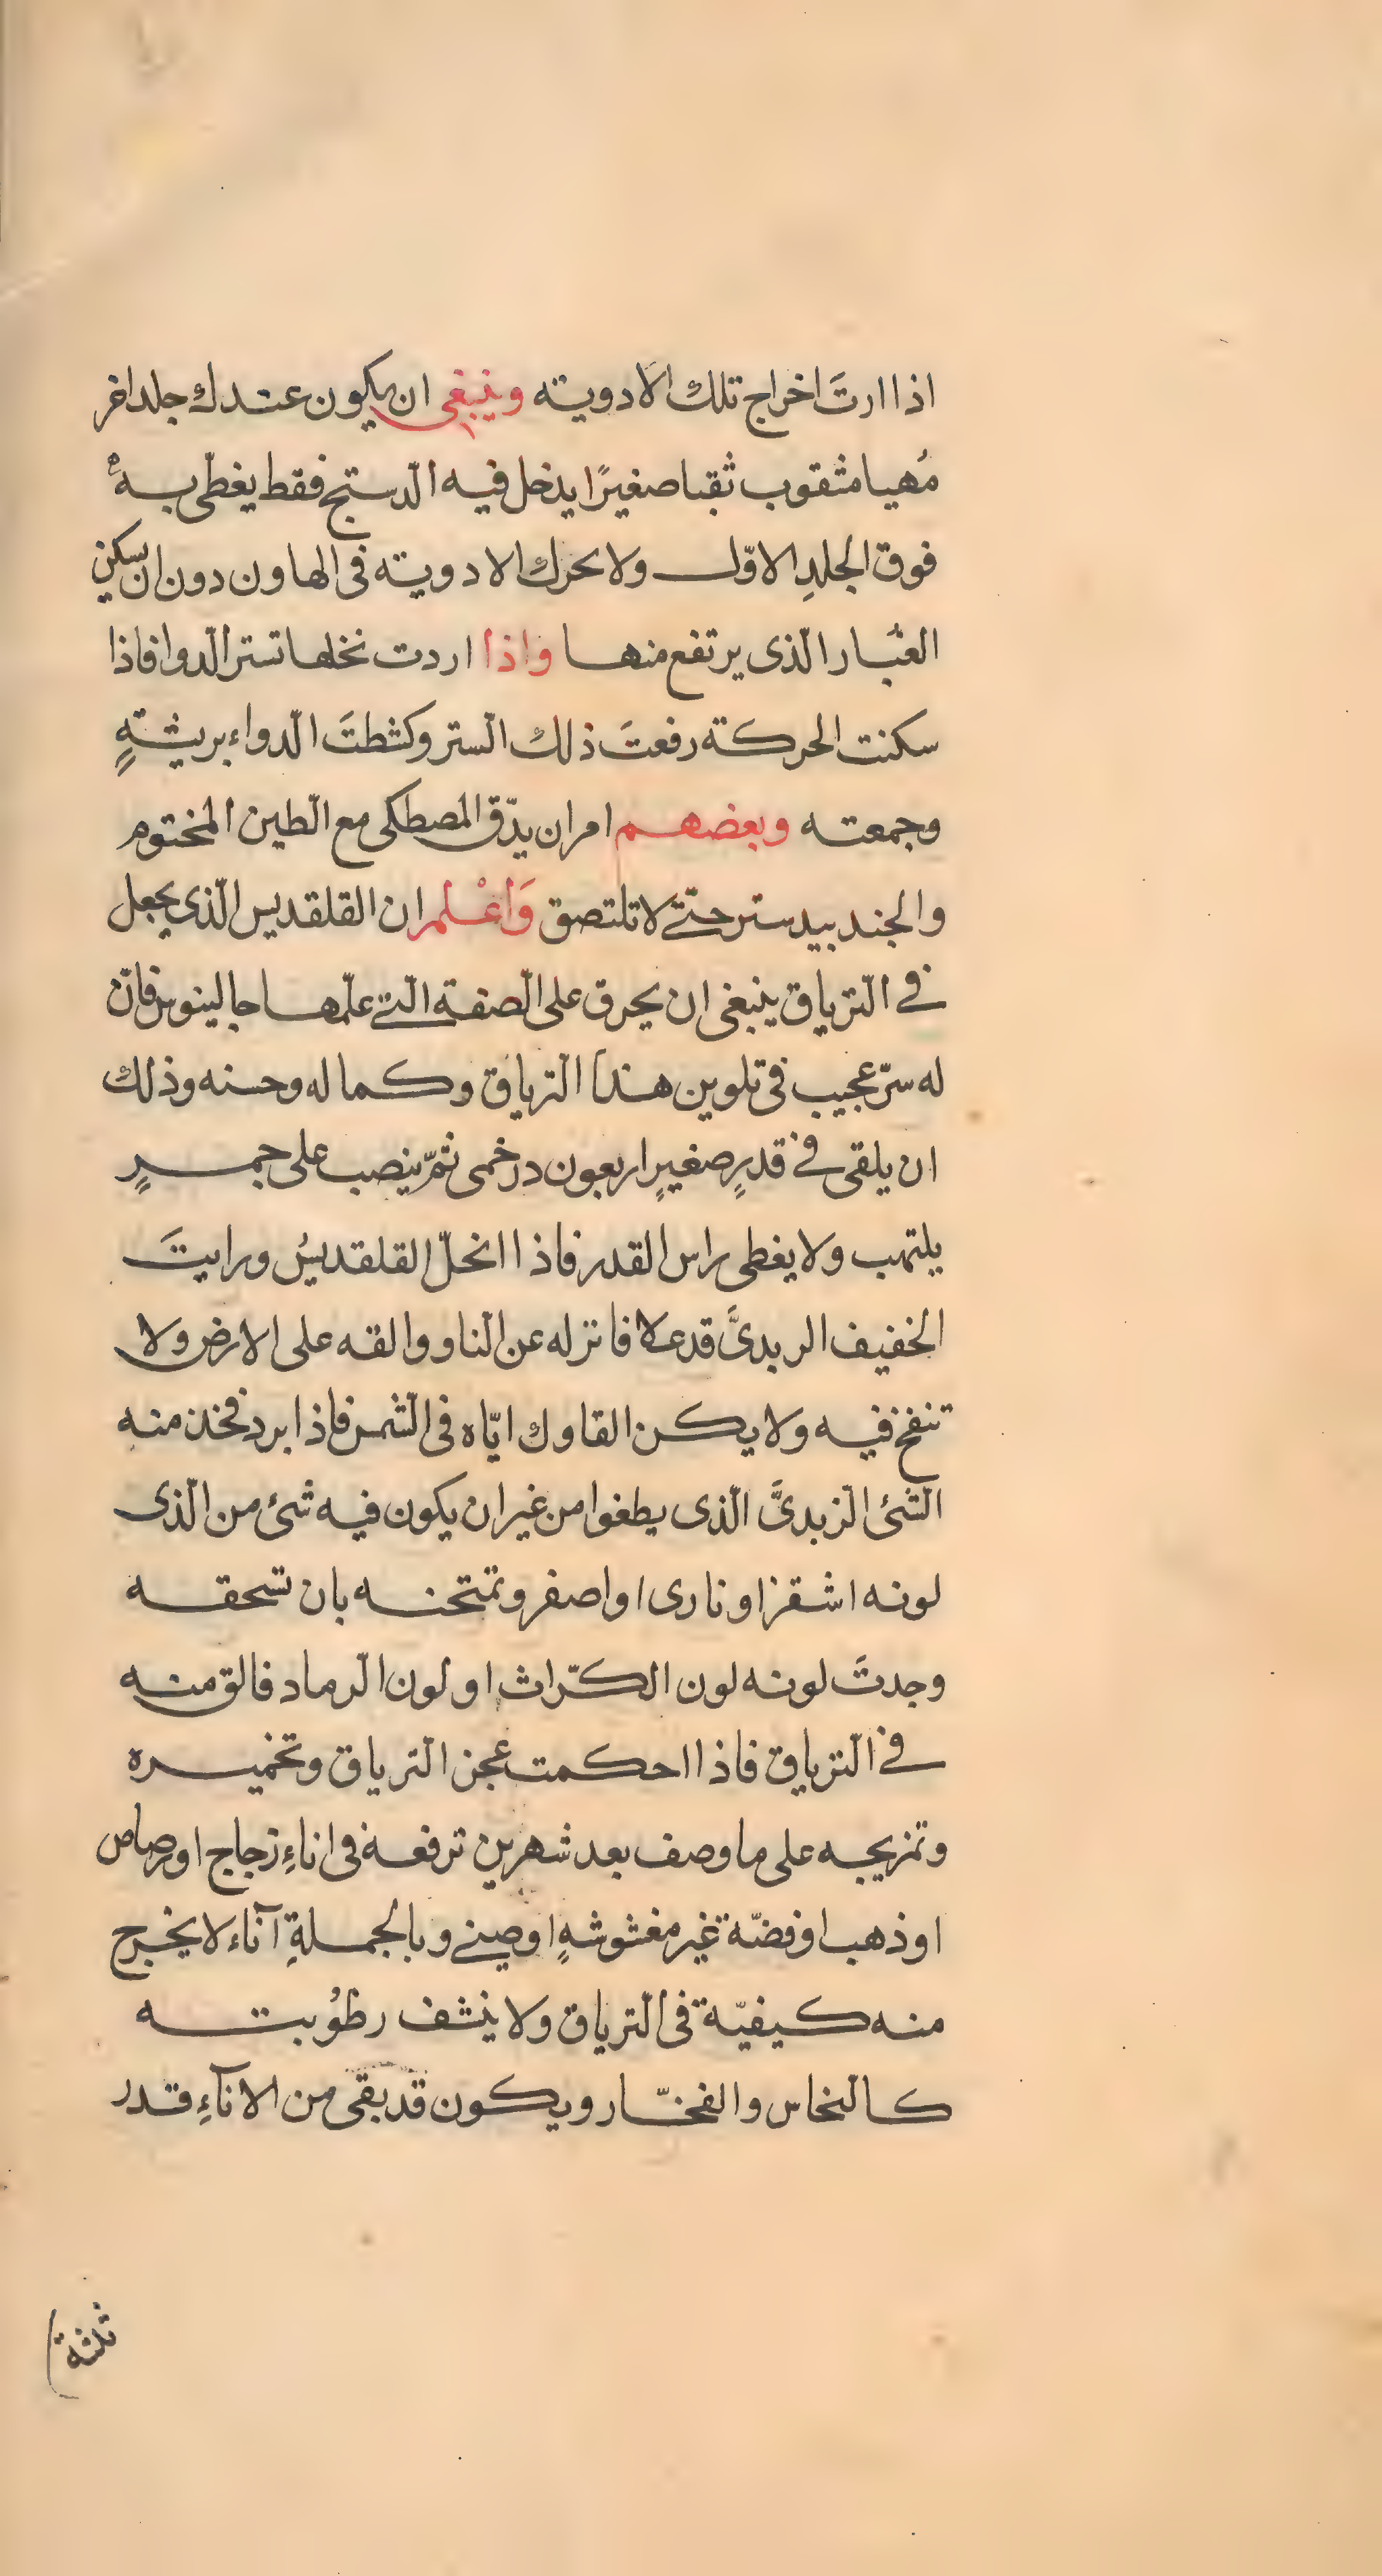 اذا ارتَ اخراج تلك الادوية وينبغى ان يكون عندك جلد اخر
مُهيا مثقوب ثقبا صغيرًا يدخل فيه الدّستج فقط يغطّى به
فوق الجلدِ الاوّل ولا يحرك الادوية فى الهاون دون ان يسكن
الغبار الّذى يرتفع منها واذا اردت نخلها تستر الّدوا فاذا
سكنت الحركة رفعتَ ذلك الّستر وكشطتَ الّدواء بريشةٍ
وجمعته وبعضهم امر ان يدّق المصطكى مع الّطين المختوم
والجندبيدستر حتّى لا تلتصق وَاعْلم ان القلقديس الّذى يجعل
فى الّترياق ينبغى ان يحرق على الّصفة الّتى علّمها جالينوس فانّ
له سرّ عجيب فى تلوين هذا الّترياق وكماله وحسنه وذلك
ان يلقى فى قدرٍ صغيرٍ اربعون درخمى ثمّ ينصب على جمرٍ
يلتهب ولا يغطى راس القدر فاذا انحلّ القلقديسُ ورايتَ
الخفيف الربدىَّ قد علا فانزله عن الّناو والقه على الارض ولا
تنفخ فيه ولا يكن القاوك ايّاه فى الّشمس فاذا برد فخذ منه
الّشئ الّزبدىَّ الّذى يطفوا من غير ان يكون فيه شئ من الّذى
لونه اشقر او نارى او اصفر وتمتحنه بان تسحقه
وجدتَ لونه لون الكرّاث او لون الّرماد فالق منه
فى الّترياق فاذا احكمت عجن الّترياق وتخميره
وتمزيجه على ما وصف بعد شهرين ترفعه فى اناءِ زجاج او رصاص
او ذهب او فضّة غير مغشوشهٍ او صينى وبالجملةِ آناء لا يخرج
منه كيفيّة فى الّترياق ولا ينشف رطوُبته
كالنحاس والفخّار ويكون قد بقى من الاناءِ قدر
ثلثة